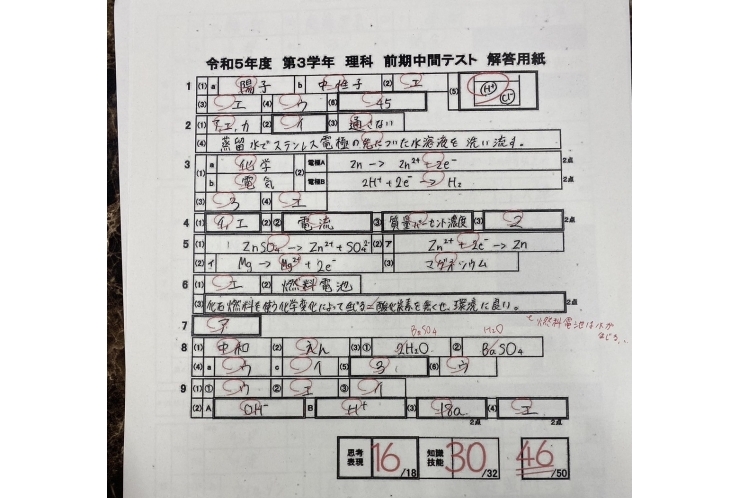 令和5年度 第3学年 理科 前期中間テスト 解答用紙
1 (1) a 陽子 b 中性子 (2) エ (5) H+ Cl-
(3) エ (4) ウ (6) 45
2 (1) エ,カ (2) イ (3) 通さない
(4) 蒸留水でステンレス電極の先についた水溶液を洗い流す。
3 (1) a 化学 (2) 電極A Zn → Zn2+ 2e- 2点
b 電気 電極B 2H+ + 2e- → H2 2点
(3) (4) エ
4 (1) エ (2) ② 電流 ③ 質量パーセント濃度 (3) 2 2点
5 (1) ZnSO4 → Zn2+ + SO4 2- (2) ア Zn2+ + 2e- → Zn
(2) イ Mg → Mg2+ + 2e- (3) マグネシウム
6 (1) エ (2) 燃料電池
(3) 化石燃料を使う化学変化によって生じる二酸化炭素を無くせ、環境に良い。 2点
燃料電池は水が
7 ア
BaSO4 H2O
8 (1) 中和 (2) えん (3) ① 2H2O ② BaSO4
(4) a ウ c イ (5) 3 (6) ウ
9 (1) ① ウ ② エ ③ イ
(2) A OH- B H+ (3) 18a (4) エ
2点 2点
思考表現 16 /18 知識技能 30 /32 46 /50